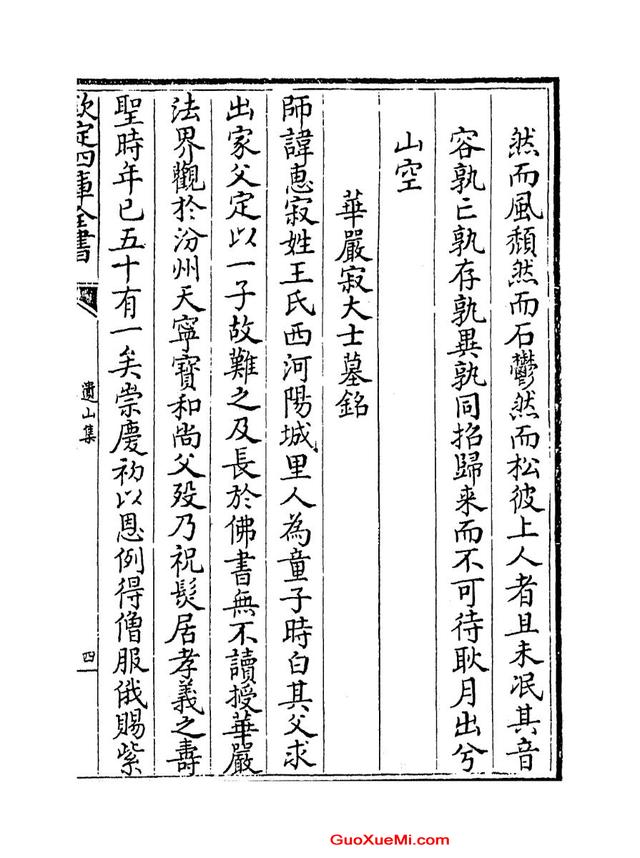 然而風頽然而石鬱然而松彼上人者且未泯其音
容孰亡孰存孰異孰同招歸来而不可待耿月出兮
山空
華嚴寂大士墓銘
師諱惠寂姓王氏西河陽城里人為童子時白其父求
出家父定以一子故難之及長於佛書無不讀授華嚴
法界觀於汾州天寧寳和尚父殁乃祝髮居孝義之壽
聖時年已五十有一矣崇慶初以恩例得僧服俄賜紫
欽定四庫全書
遺山集
四
GuoXueMi.com